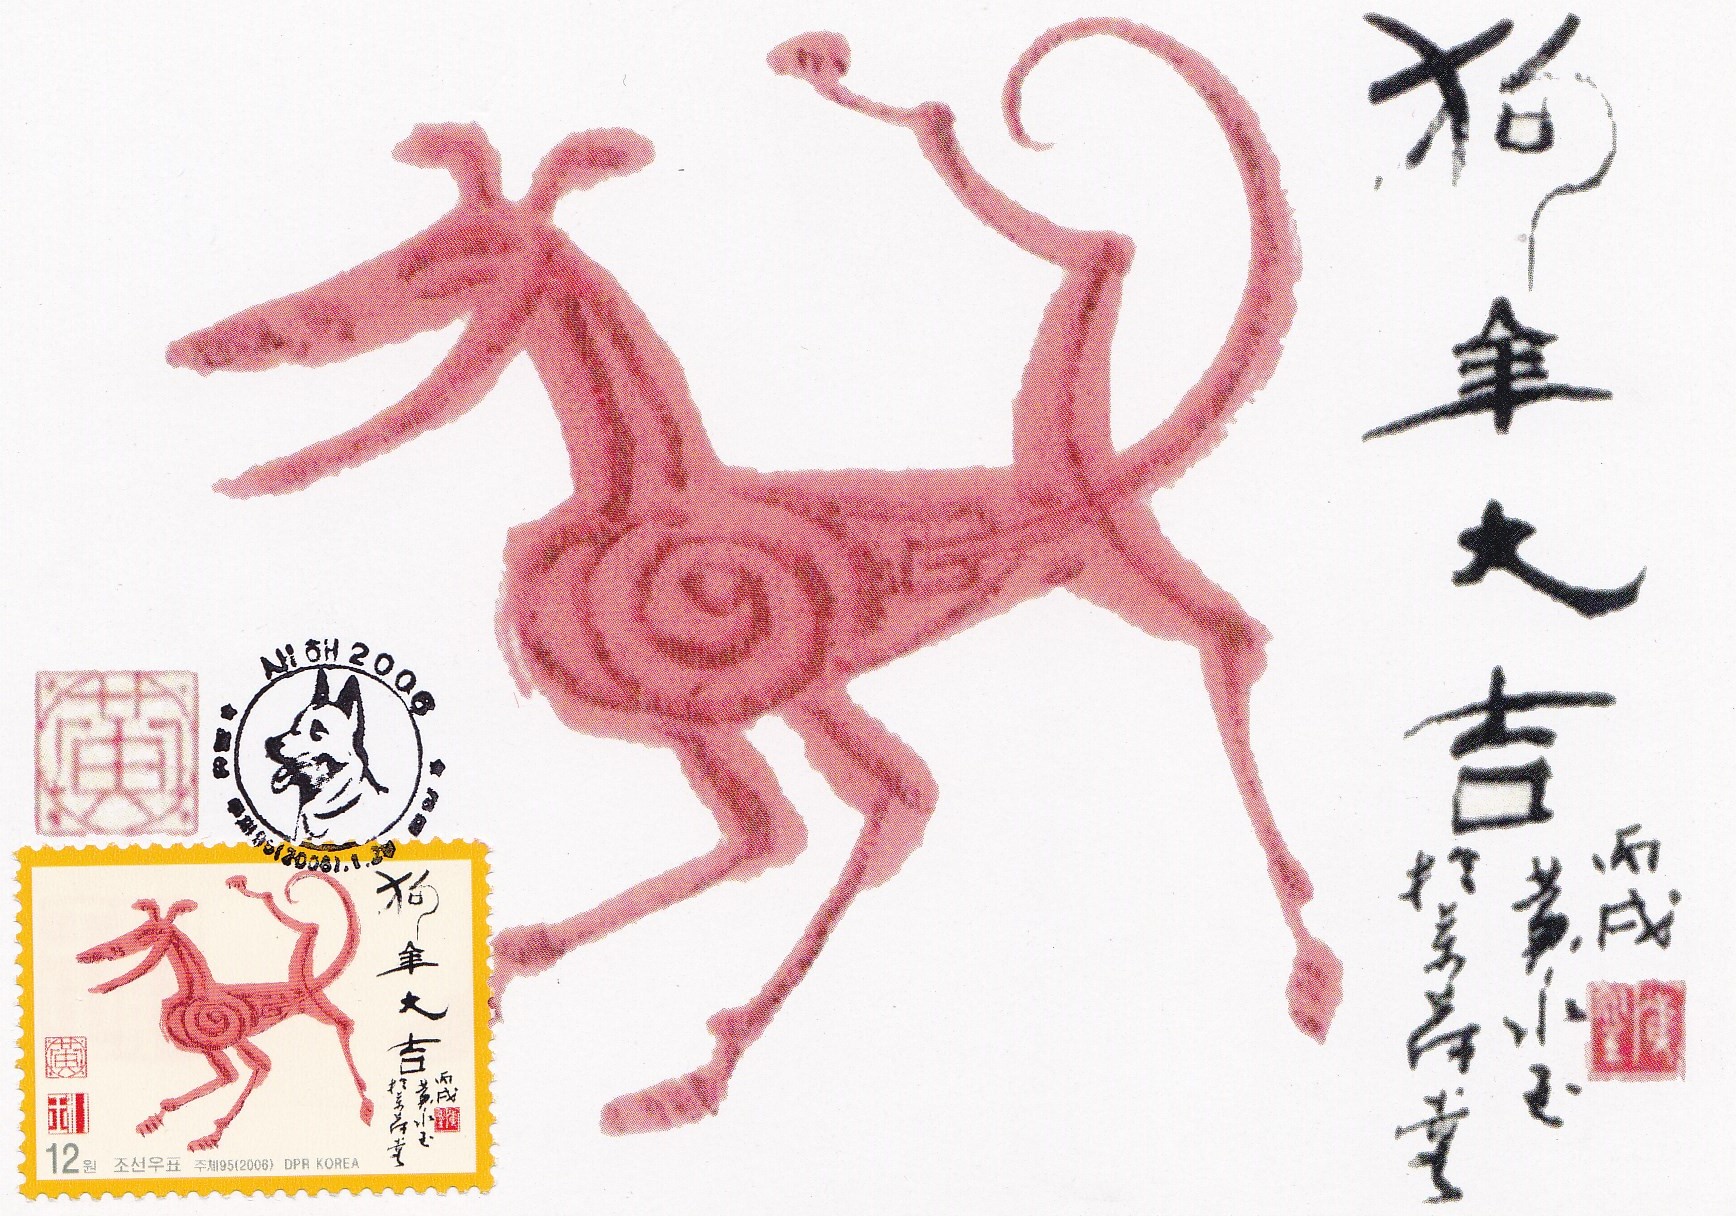 狗年大吉
丙戌
黄永玉
黄
새해2006
주체95(2006).1.
狗年大吉
丙戌
黄永玉
黄
12원 조선우표 주체95(2006) DPR KOREA